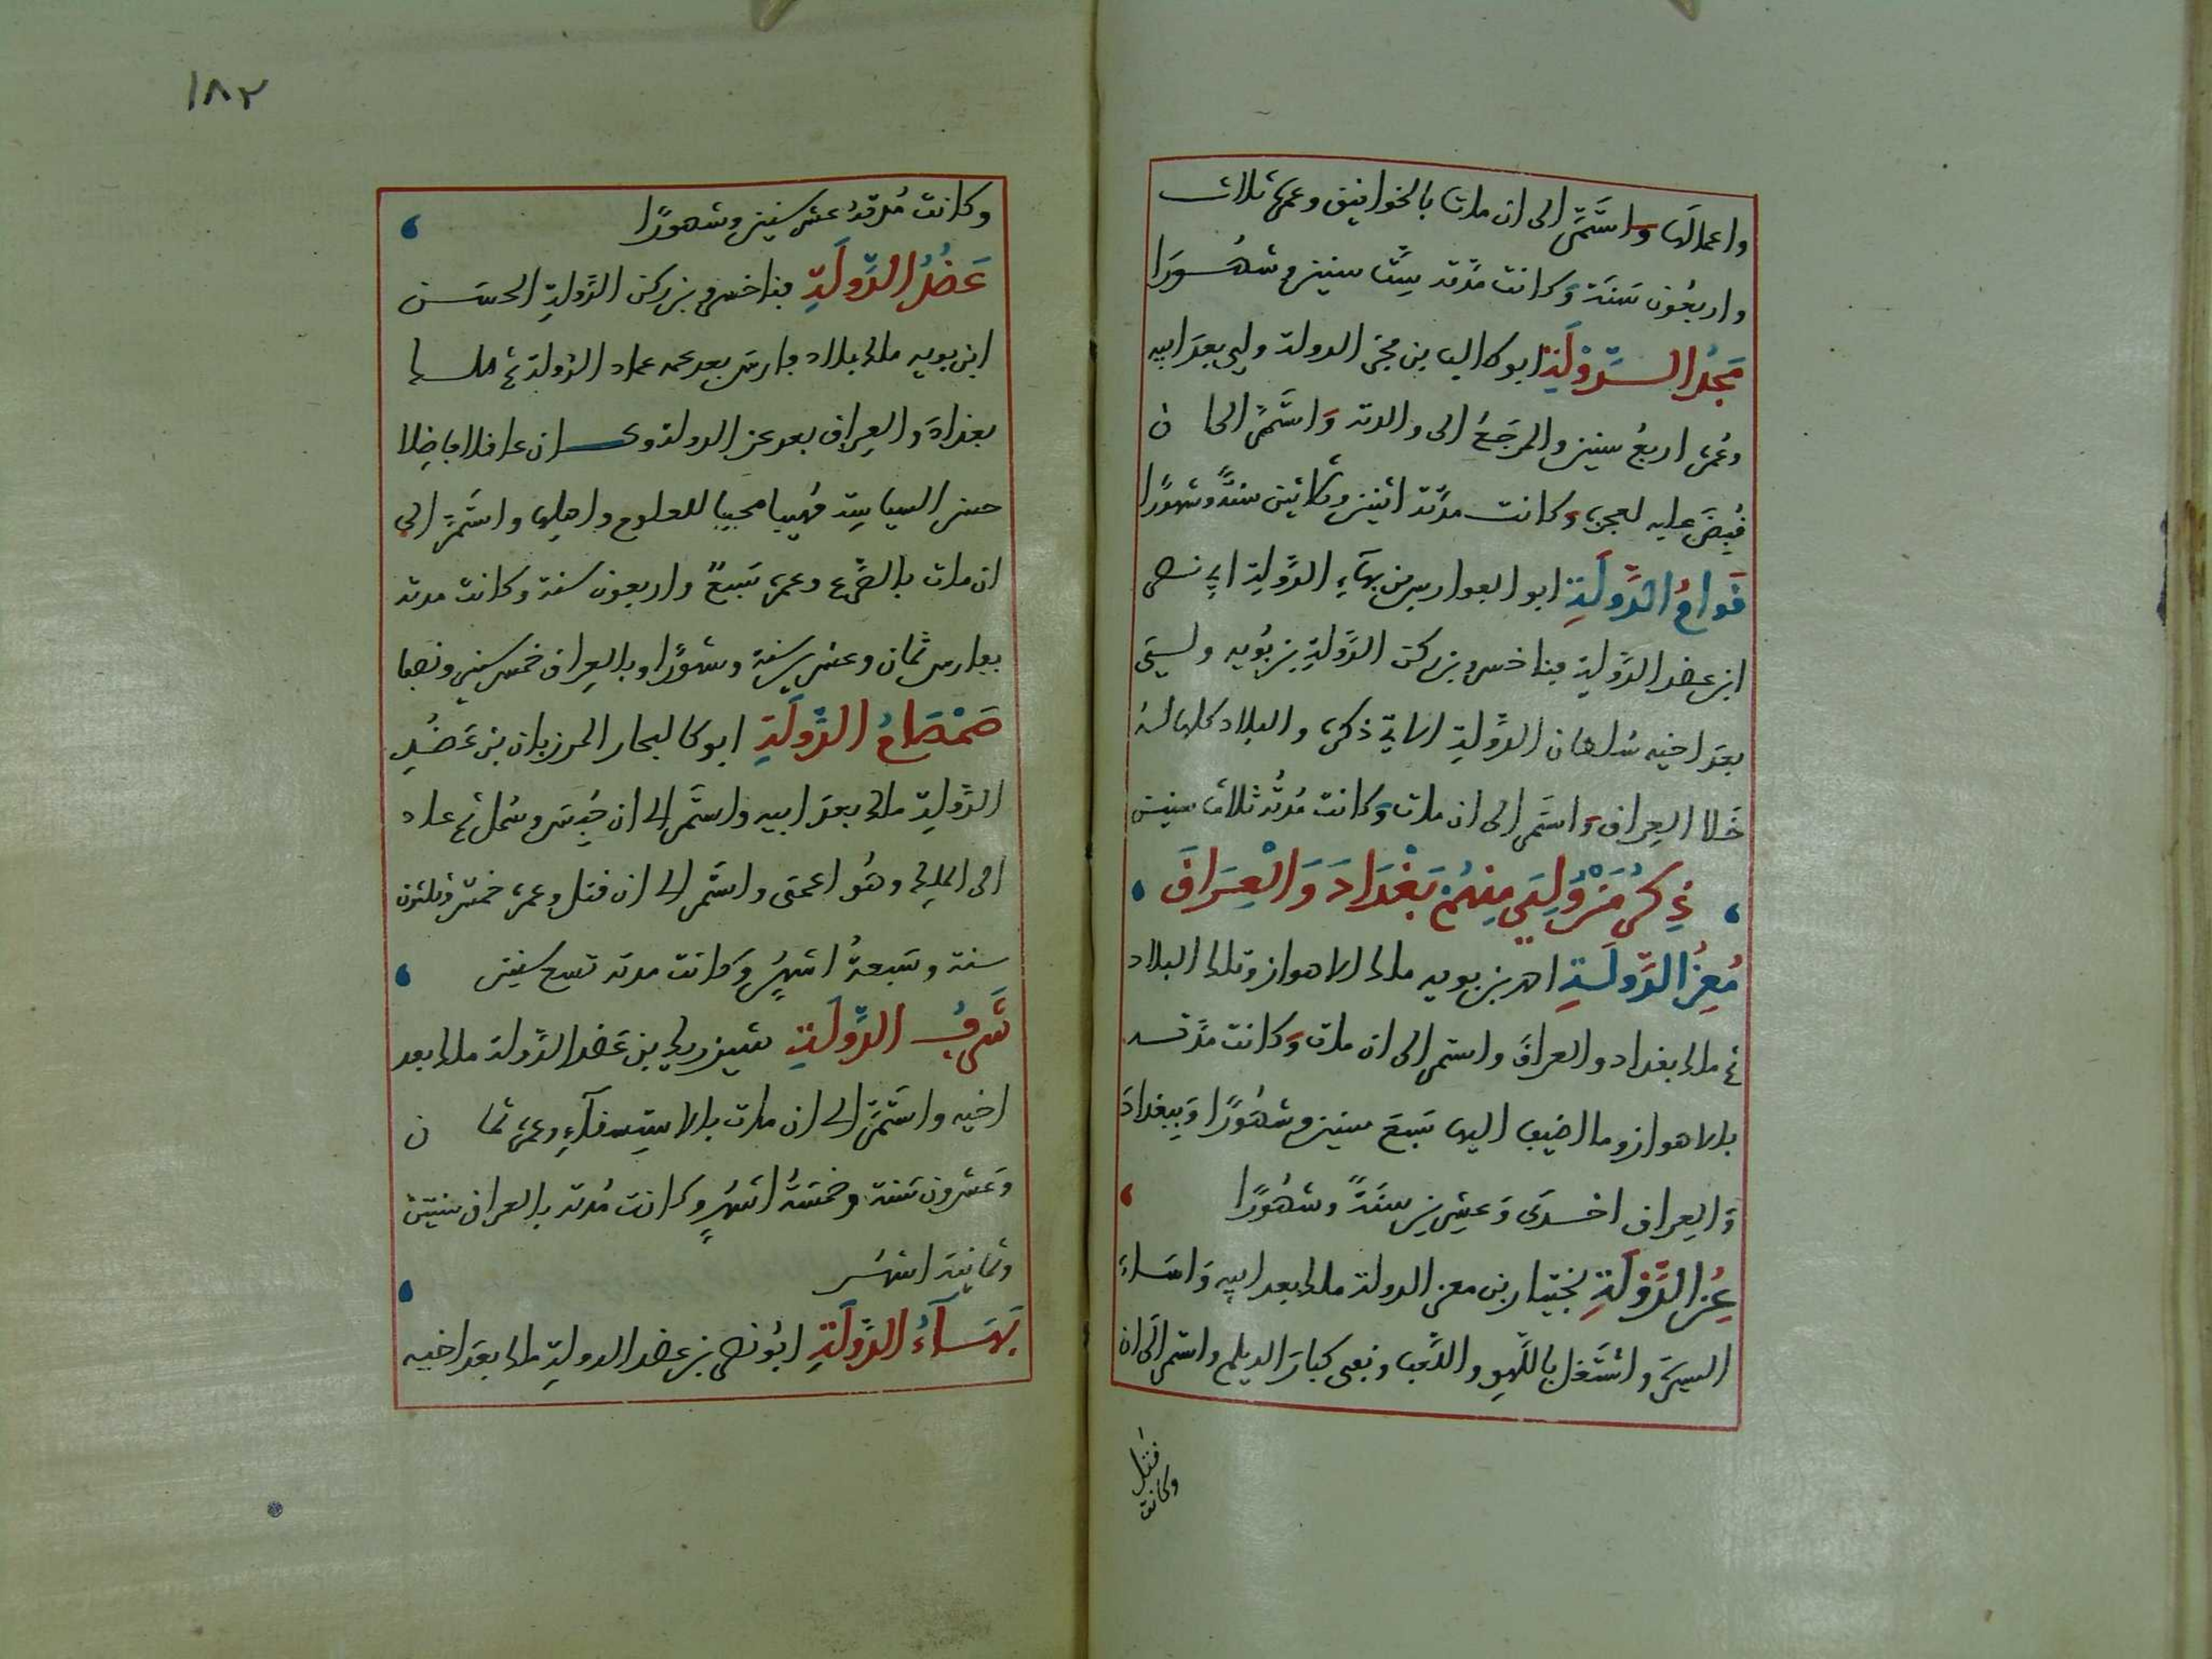 واعمالها واستمر الى ان مات بالخوانيق وعمره ثلاث
واربعون سنة وكانت مدته ست سنين وشهورا
مجد الدولة ابو كاليب بن فخر الدولة ولي بعد ابيه
وعمره اربع سنين والمرجع الى والدته واستمر الى ان
قبض عليه لعجزه وكانت مدته اثنين وثلاثين سنة وشهورا
قوام الدولة ابو الفوارس بن بهاء الدولة ابي نصر
ابن عضد الدولة فناخسرو بن ركن الدولة بن بويه ولي
بعد اخيه سلطان الدولة الاتي ذكره والبلاد كلها له
خلا العراق واستمر الى ان مات وكانت مدته ثلاث سنين
ذكر من ولي منهم بغداد والعراق
معز الدولة احمد بن بويه ملك الاهواز وتلك البلاد
ثم ملك بغداد والعراق واستمر الى ان مات وكانت مدته
بالاهواز وما اضيف اليها سبع سنين وشهورا وببغداد
والعراق احدى وعشرين سنة وشهورا
عز الدولة بختيار بن معز الدولة ملك بعد ابيه واساء
السيرة واشتغل باللهو واللعب ونفى كبار الديلم واستمر الى ان
قتل
وكانت
١٨٢
وكانت مدته عشر سنين وشهورا
عضد الدولة فناخسرو بن ركن الدولة الحسن
ابن بويه ملك بلاد فارس بعد عمه عماد الدولة ثم ملك
بغداد والعراق بعد عز الدولة وكان عاقلا فاضلا
حسن السياسة مهيبا محبا للعلوم واهلها واستمر الى
ان مات بالصرع وعمره سبع واربعون سنة وكانت مدته
بفارس ثمان وعشرين سنة وشهورا وبالعراق خمس سنين ونصفا
صمصام الدولة ابو كاليجار المرزبان بن عضد
الدولة ملك بعد ابيه واستمر الى ان حبس وسمل ثم عاد
الى الملك وهو اعمى واستمر الى ان قتل وعمره خمس وثلثون
سنة وسبعة اشهر وكانت مدته تسع سنين
شرف الدولة شيرزيك بن عضد الدولة ملك بعد
اخيه واستمر الى ان مات بالاستسقاء وعمره ثمان
وعشرون سنة وخمسة اشهر وكانت مدته بالعراق سنتين
وثمانية اشهر
بهاء الدولة ابو نصر بن عضد الدولة ملك بعد اخيه